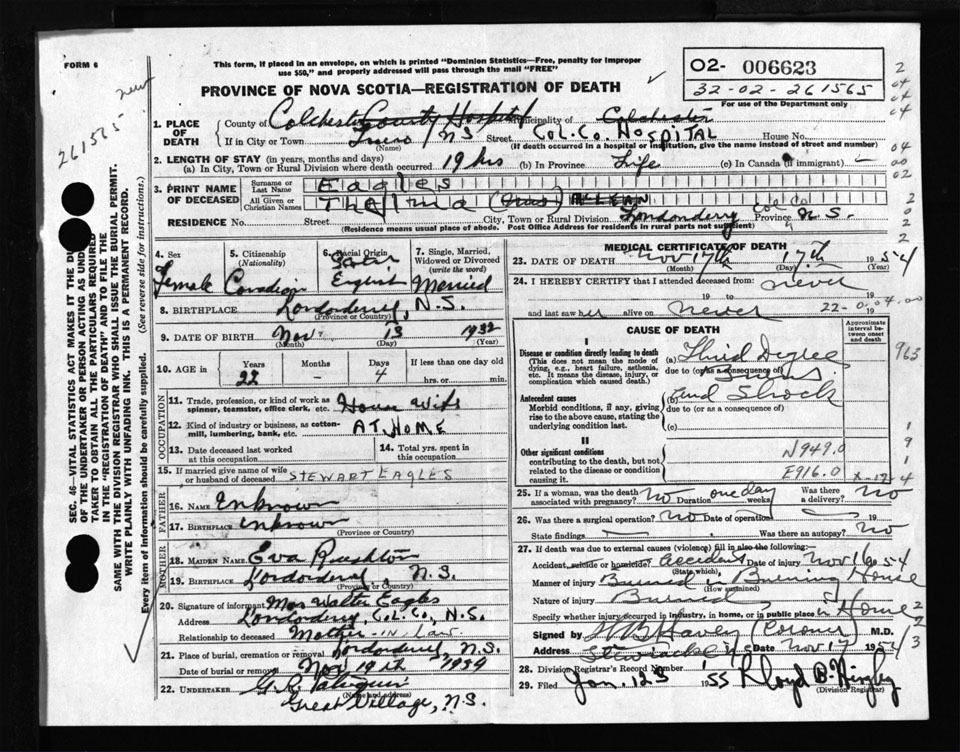 FORM 6
This form, if placed in an envelope, on which is printed "Dominion Statistics—Free, penalty for improper
use $50," and properly addressed will pass through the mail "FREE"
PROVINCE OF NOVA SCOTIA—REGISTRATION OF DEATH
O2- 006623
32-02-261565
For use of the Department only
new
261565
1. PLACE OF DEATH
County of Colchester County Hospital Municipality of Colchester
If in City or Town Truro N S Street Col. Co. HOSPITAL House No.
(Name) (If death occurred in a hospital or institution, give the name instead of street and number)
2. LENGTH OF STAY (in years, months and days)
(a) In City, Town or Rural Division where death occurred 19 hrs (b) In Province Life (c) In Canada (if immigrant) –
3. PRINT NAME OF DECEASED
Surname or Last Name Eagles
All Given or Christian Names Thelma ALLEAN
RESIDENCE No. Street City, Town or Rural Division Londonderry Col Co Province N S.
(Residence means usual place of abode. Post Office Address for residents in rural parts not sufficient)
4. Sex Female
5. Citizenship (Nationality) Canadian
6. Racial Origin English
7. Single, Married, Widowed or Divorced (write the word) Married
8. BIRTHPLACE Londonderry, N.S.
(Province or Country)
9. DATE OF BIRTH Nov. 13 1932
(Month) (Day) (Year)
10. AGE in Years 22 Months – Days 4 If less than one day old hrs. or min.
OCCUPATION
11. Trade, profession, or kind of work as spinner, teamster, office clerk, etc. House wife
12. Kind of industry or business, as cotton-mill, lumbering, bank, etc. AT HOME
13. Date deceased last worked at this occupation
14. Total yrs. spent in this occupation
15. If married give name of wife or husband of deceased STEWART EAGLES
FATHER
16. NAME Unknown
17. BIRTHPLACE Unknown
(Province or Country)
MOTHER
18. MAIDEN NAME Eva Rushton
19. BIRTHPLACE Londonderry, N.S.
(Province or Country)
20. Signature of informant Mrs Walter Eagles
Address Londonderry, Col. Co., N.S.
Relationship to deceased Mother-in Law
21. Place of burial, cremation or removal Londonderry, N.S.
Date of burial or removal Nov 19th 1954
22. UNDERTAKER G. R.
(Name and address)
Great Village, N.S.
MEDICAL CERTIFICATE OF DEATH
23. DATE OF DEATH Nov 17th 17th 1954
(Month) (Day) (Year)
24. I HEREBY CERTIFY that I attended deceased from never
19 to 19
and last saw her alive on never 22-0.04.00
CAUSE OF DEATH
Approximate interval between onset and death
I
Disease or condition directly leading to death
(This does not mean the mode of dying, e.g., heart failure, asthenia, etc. It means the disease, injury, or complication which caused death.
(a) Third Degree Burns
due to (or as a consequence of)
963
Antecedent causes
Morbid conditions, if any, giving rise to the above cause, stating the underlying condition last.
(b) and Shock
due to (or as a consequence of)
(c)
II
Other significant conditions
contributing to the death, but not related to the disease or condition causing it.
N949.0
E916.0
X-12-4
25. If a woman, was the death associated with pregnancy? no Duration one day weeks Was there a delivery? no
26. Was there a surgical operation? no Date of operation 19
State findings – Was there an autopsy? no
27. If death was due to external causes (violence) fill in also the following:
Accident, suicide or homicide? accident Date of injury Nov 16 1954
(State which)
Manner of injury Burned in Burning House
(How sustained)
Nature of injury Burned
Specify whether injury occurred in industry, in home, or in public place in Home
Signed by (Coroner) M.D.
Address Stewiacke N S Date Nov 17 1954
28. Division Registrar's Record Number 1
29. Filed Jan. 12 1955
(Division Registrar)
SEC. 46—VITAL STATISTICS ACT MAKES IT THE DUTY
OF THE UNDERTAKER OR PERSON ACTING AS UNDER
TAKER TO OBTAIN ALL THE PARTICULARS REQUIRED
IN THE "REGISTRATION OF DEATH" AND TO FILE THE
SAME WITH THE DIVISION REGISTRAR WHO SHALL ISSUE THE BURIAL PERMIT.
WRITE PLAINLY WITH UNFADING INK. THIS IS A PERMANENT RECORD.
Every item of information should be carefully supplied. (See reverse side for instructions.)